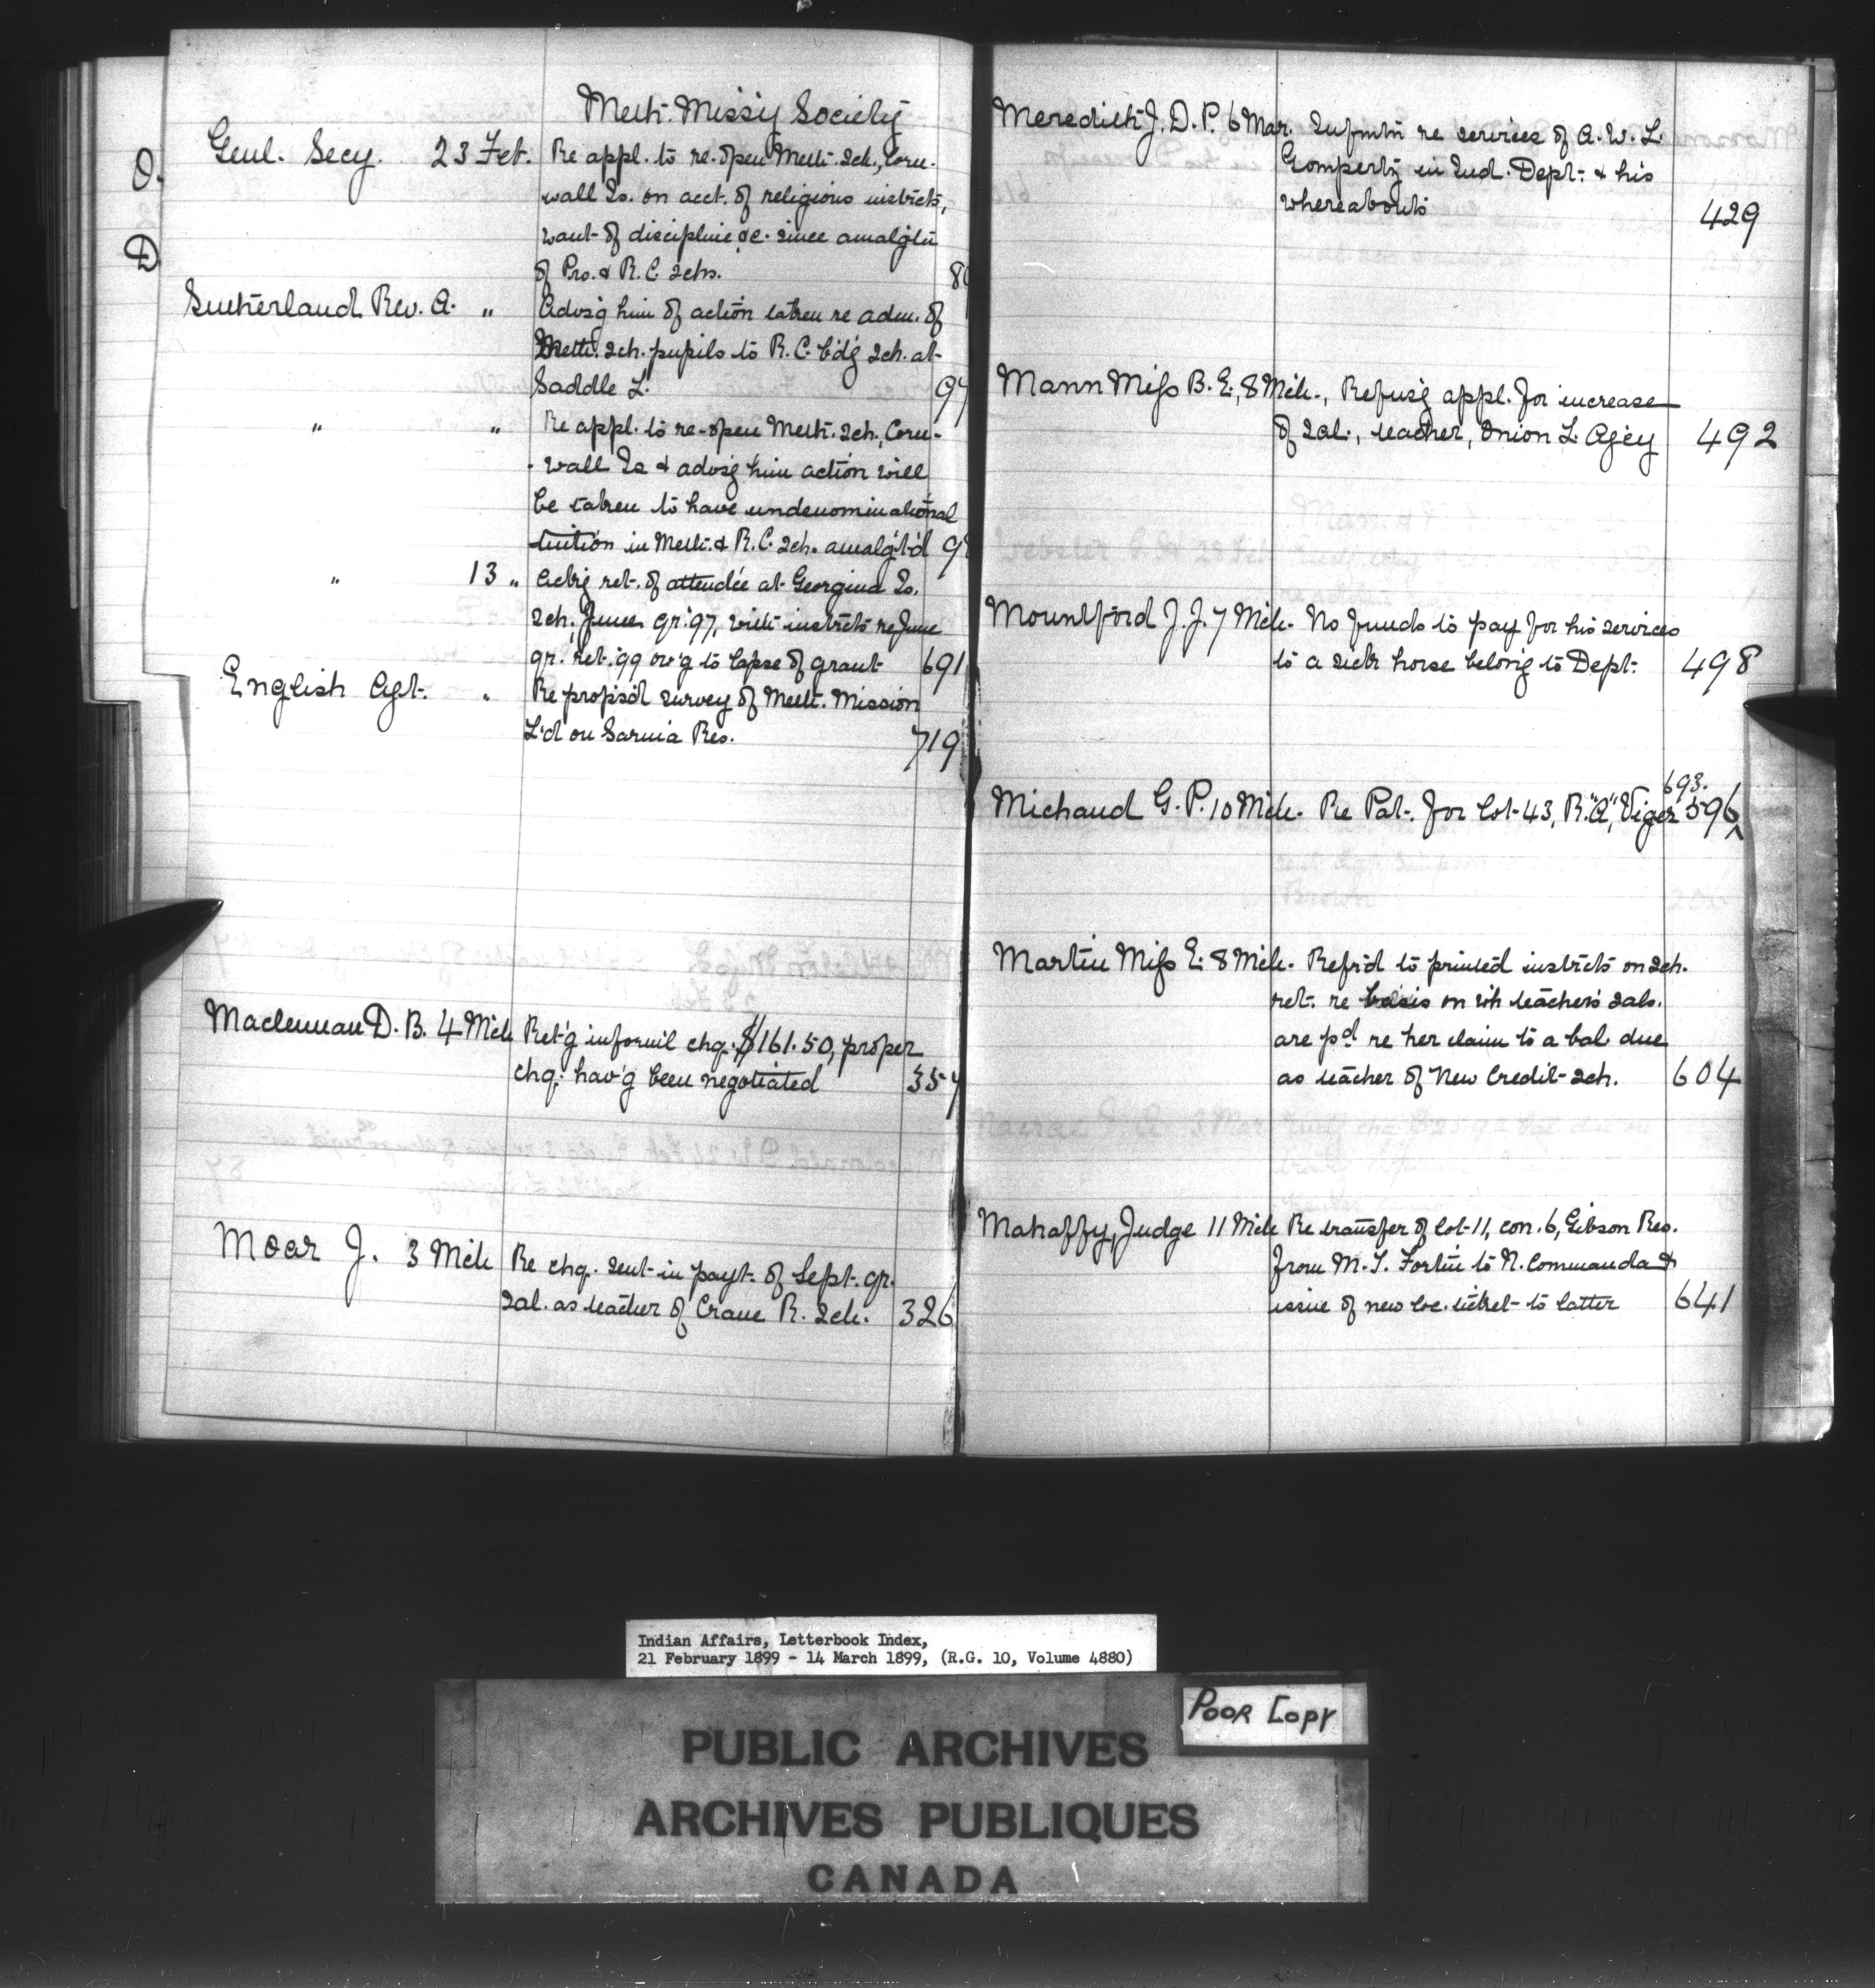 O.
D
Meth. Miss'y Society
Genl. Secy. 23 Feb. Re appl. to re-open Meth. Sch., Corn-
wall Is. on acct. of religious instrcts,
want of discipline &c. since amalg'tn
of Pro. & R.C. Schs.
Sutherland Rev. A. " Advis'g him of action taken re adm. of
Meth. Sch. pupils to R.C. b'd'g Sch. at
Saddle L.
" " Re appl. to re-open Meth. Sch., Corn-
-wall Is & advis'g him action will
be taken to have undenominational
tuition in Meth. & R.C. Sch. amalg't'd
" 13 " Ack'g ret. of attend'ce at Georgina Is.
Sch., June qr. '97, with instrcts re June
qr. ret. '99 ow'g to lapse of grant 691
English Agt. " Re propos'd survey of Meth. Mission
L'd on Sarnia Res. 719
Maclennan D. B. 4 Mch Ret'g informl chq. $161.50, proper
chq. hav'g been negotiated 357
Moar J. 3 Mch Re chq. sent in payt. of Sept. qr.
Sal. as teacher of Crane R. Sch. 326
Meredith J. D. P. 6 Mar. Infmtn re services of A. W. L.
Gompertz in Ind. Dept. & his
whereabouts 429
Mann Miss B. E., 8 Mch., Refus'g appl. for increase
of Sal., teacher, Onion L. Ag'cy 492
Mountford J. J. 7 Mch. No funds to pay for his services
to a sick horse belong'g to Dept. 498
693.
Michaud G. P. 10 Mch. Re Pat. for lot 43, R. "A", Viger 596
Martin Miss E. 8 Mch. Refr'd to printed instrcts on Sch.
ret. re basis on wh teachers' Sals.
are pd re her claim to a bal. due
as teacher of New Credit Sch. 604
Mahaffy, Judge 11 Mch Re transfer of lot 11, con. 6, Gibson Res.
from M. T. Fortin to N. Commanda &
issue of new loc. ticket to latter 641
Indian Affairs, Letterbook Index,
21 February 1899 - 14 March 1899, (R.G. 10, Volume 4880)
POOR COPY
PUBLIC ARCHIVES
ARCHIVES PUBLIQUES
CANADA